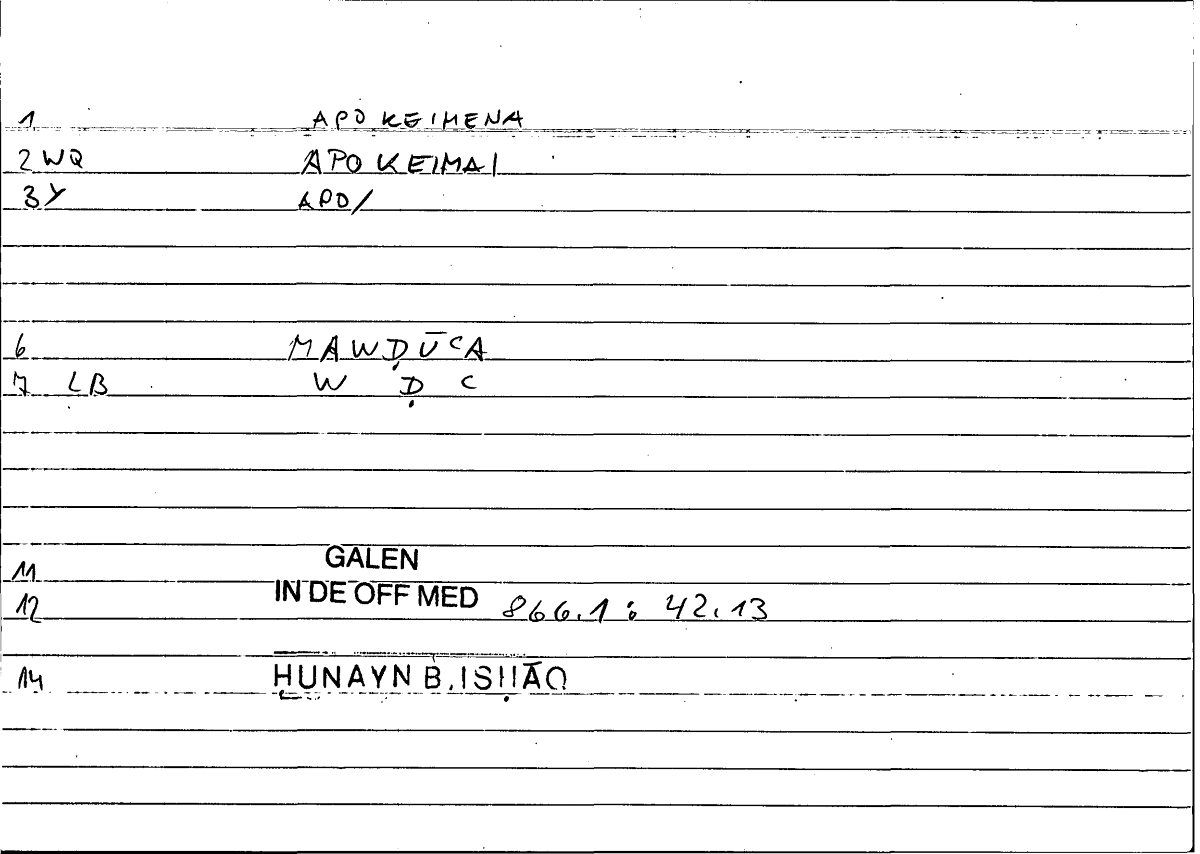 1 APOKEIMENA
2 WQ APOKEIMAI
3Y APO/
6 MAWḌŪCA
7 LB W Ḍ C
11 GALEN
12 IN DE OFF MED 866.1 : 42.13
14 ḤUNAYN B. ISḤĀQ